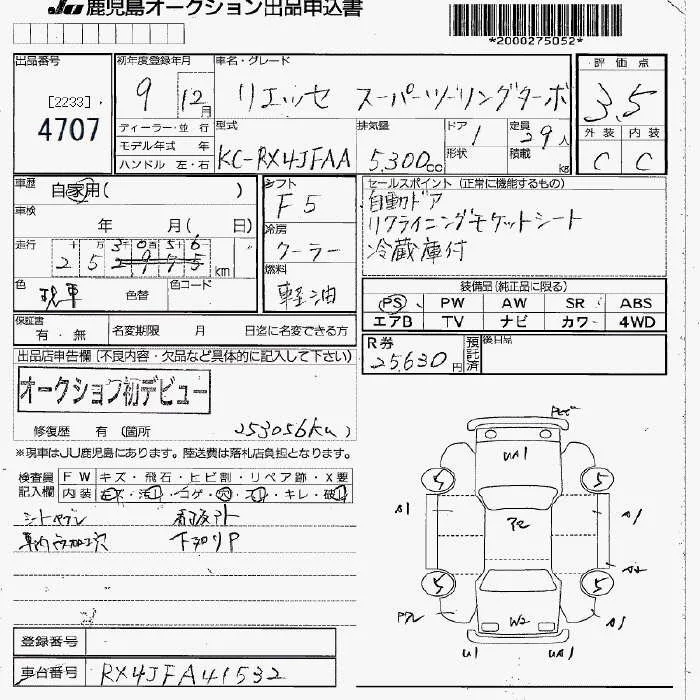 JU 鹿児島オークション出品申込書
*2000275052*
出品番号
[2233]
4707
初年度登録年月
9 12月
車名・グレード
リエッセ スーパーツーリングターボ
評価点
3.5
外装 内装
C C
ディーラー・並行
モデル年式 年
ハンドル 左・右
型式
KC-RX4JFAA
排気量
5,300cc
ドア 1
形状
定員 29人
積載 kg
車歴
自家用( )
車検
年 月(日)
走行
十 万 千 百 十 一
2 5 3 0 5 6 km
色
現車 色替
色コード
シフト
F5
冷房
クーラー
燃料
軽油
セールスポイント(正常に機能するもの)
自動ドア
リクライニングモケットシート
冷蔵庫付
装備品(純正品に限る)
PS PW AW SR ABS
エアB TV ナビ カワー 4WD
保証書
有・無
名変期限 月 日迄に名変できる方
R券
25,630円
預託済
後日品
出品店申告欄(不良内容・欠品など具体的に記入して下さい)
オークション初デビュー
修復歴 有(箇所 253056km)
※現車はJU鹿児島にあります。陸送費は落札店負担となります。
検査員記入欄
FW キズ・飛石・ヒビ割・リペア跡・X要
内装 キズ・汚レ・コゲ・穴・スレ・キレ・破レ
下回りP
UA1
A1
A1
W2
U1
UA1
A1
S
S
S
S
登録番号
車台番号
RX4JFA41532